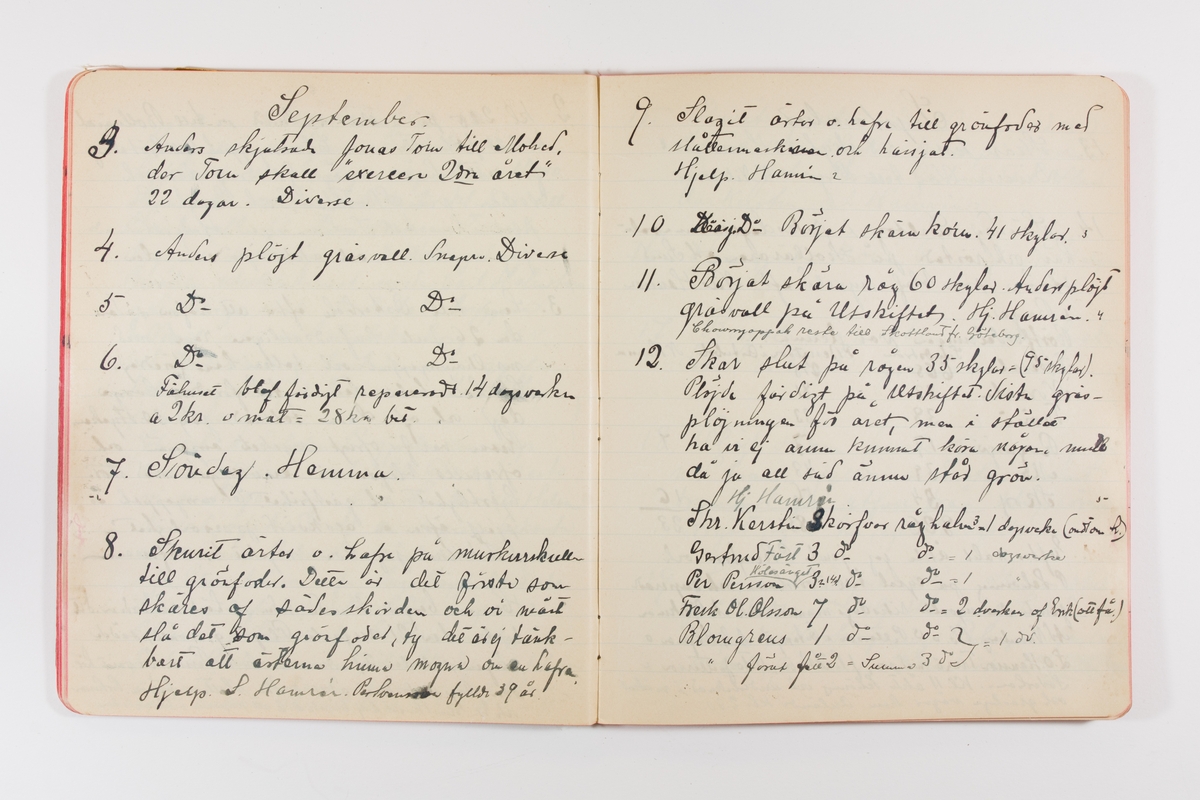 September.
3. Anders skjutsade Jonas Torn till Mohed,
der Torn skall "exercera 2dra året"
22 dagar. Diverse.
4. Anders plöjt gräsvall. Snapw. Diverse
5 Do Do
6. Do Do
Fähuset blef färdigt repareradt 14 dagsverken
a 2 kr. o mat = 28 kr
7. Söndag. Hemma.
8. Skurit ärter o. hafre på murkurskullen
till grönfoder. Detta är det första som
skäres af sädesskörden och vi måst
slå det som grönfoder, ty det är ej tänk-
bart att ärterna hinna mogna om en hafre
Hjelp. S. Hamrén. Per Svensson fyllde 39 år.
9. Slagit ärter o. hafre till grönfoder med
slåttermaskinen och hässjat.
Hjelp. Hamrén 2
10 Do Börjat skära korn. 41 skylar.
11. Börjat skära råg 60 skylar. Anders plöjt
gräsvall på Utskiftet. Hj. Hamrén. "
reste till Skottland fr. Göteborg
12. Skar slut på rågen 35 skylar = (95 skylar).
Plöjde färdigt på Utskiftet. Sista gräs-
plöjningen för året, men i stället
ha vi ej ännu kunnat köra någon mull
då ju all säd ännu står grön.
Hj Hamrén
Skr. Kerstin 3 körfvor råghalm = 1 dagsverke
Gertrud Fäst 3 do do = 1 dagsverke
Per Persson 3 do do = 1 "
Fredk Ol. Olsson 7 do do = 2 dverken af Erik
Blomgrens 1 do do = 1 dv.
" förut 2 = Summa 3 do